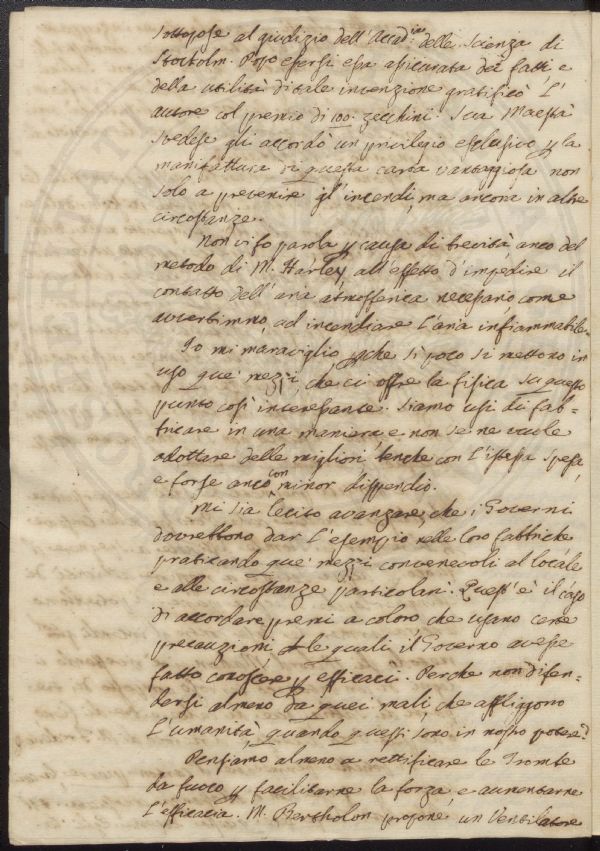 sottopose al giudizio dell'Accad.ia delle scienza di
Stocolm. Dopo essersi essa assicurata dei fatti e
della utilità di tale invenzione gratificò L'
autore col premio di 100. zecchini. Sua Maestà
Svedese gli accordò un privilegio esclusivo p la
manifattura di questa carta vantaggiosa non
solo a prevenire gl'incendi, ma ancora in altre
circostanze.
Non vi fo parola p causa di brevità, anco del
metodo di M. Harley all'effetto d'impedire il
contatto dell'aria atmosferica necessario come
avvertimmo, ad incendiare l'aria infiammabile.
Io mi maraviglio pche sì poco si mettono in
uso que' mezzi, che ci offre la fisica su questo
punto così interessante. Siamo usi di fab=
bricare in una maniera e non se ne vuole
adottare delle migliori benche con L'istessa spesa,
e forse anco con minor dispendio.
Mi sia lecito avanzare, che i Governi
dovrebbono dar L'esempio nelle loro fabbriche
praticando que' mezzi convenevoli al locale
e alle circostanze particolari. Quest'è il caso
di accordare premi a coloro che usano certe
precauzioni le quali il Governo avesse
fatto conoscere p efficaci. Perche non difen=
dersi almeno da quei mali, che affliggono
L'umanità quando questi sono in nostro potere?
Pensiamo almeno a rettificare le Trombe
da fuoco p facilitarne la forza, e aumentarne
L'efficacia. M. Bertholon propone un Ventilatore